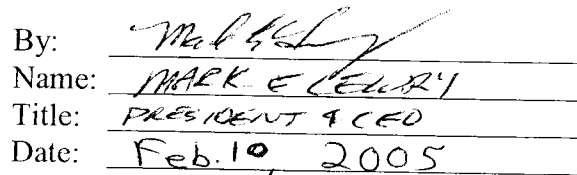 By:
Name: MARK E
Title: PRESIDENT & CEO
Date: Feb. 10, 2005